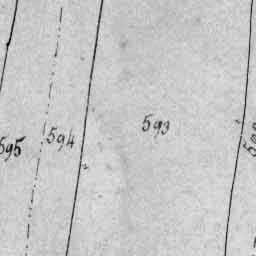 595
594
593